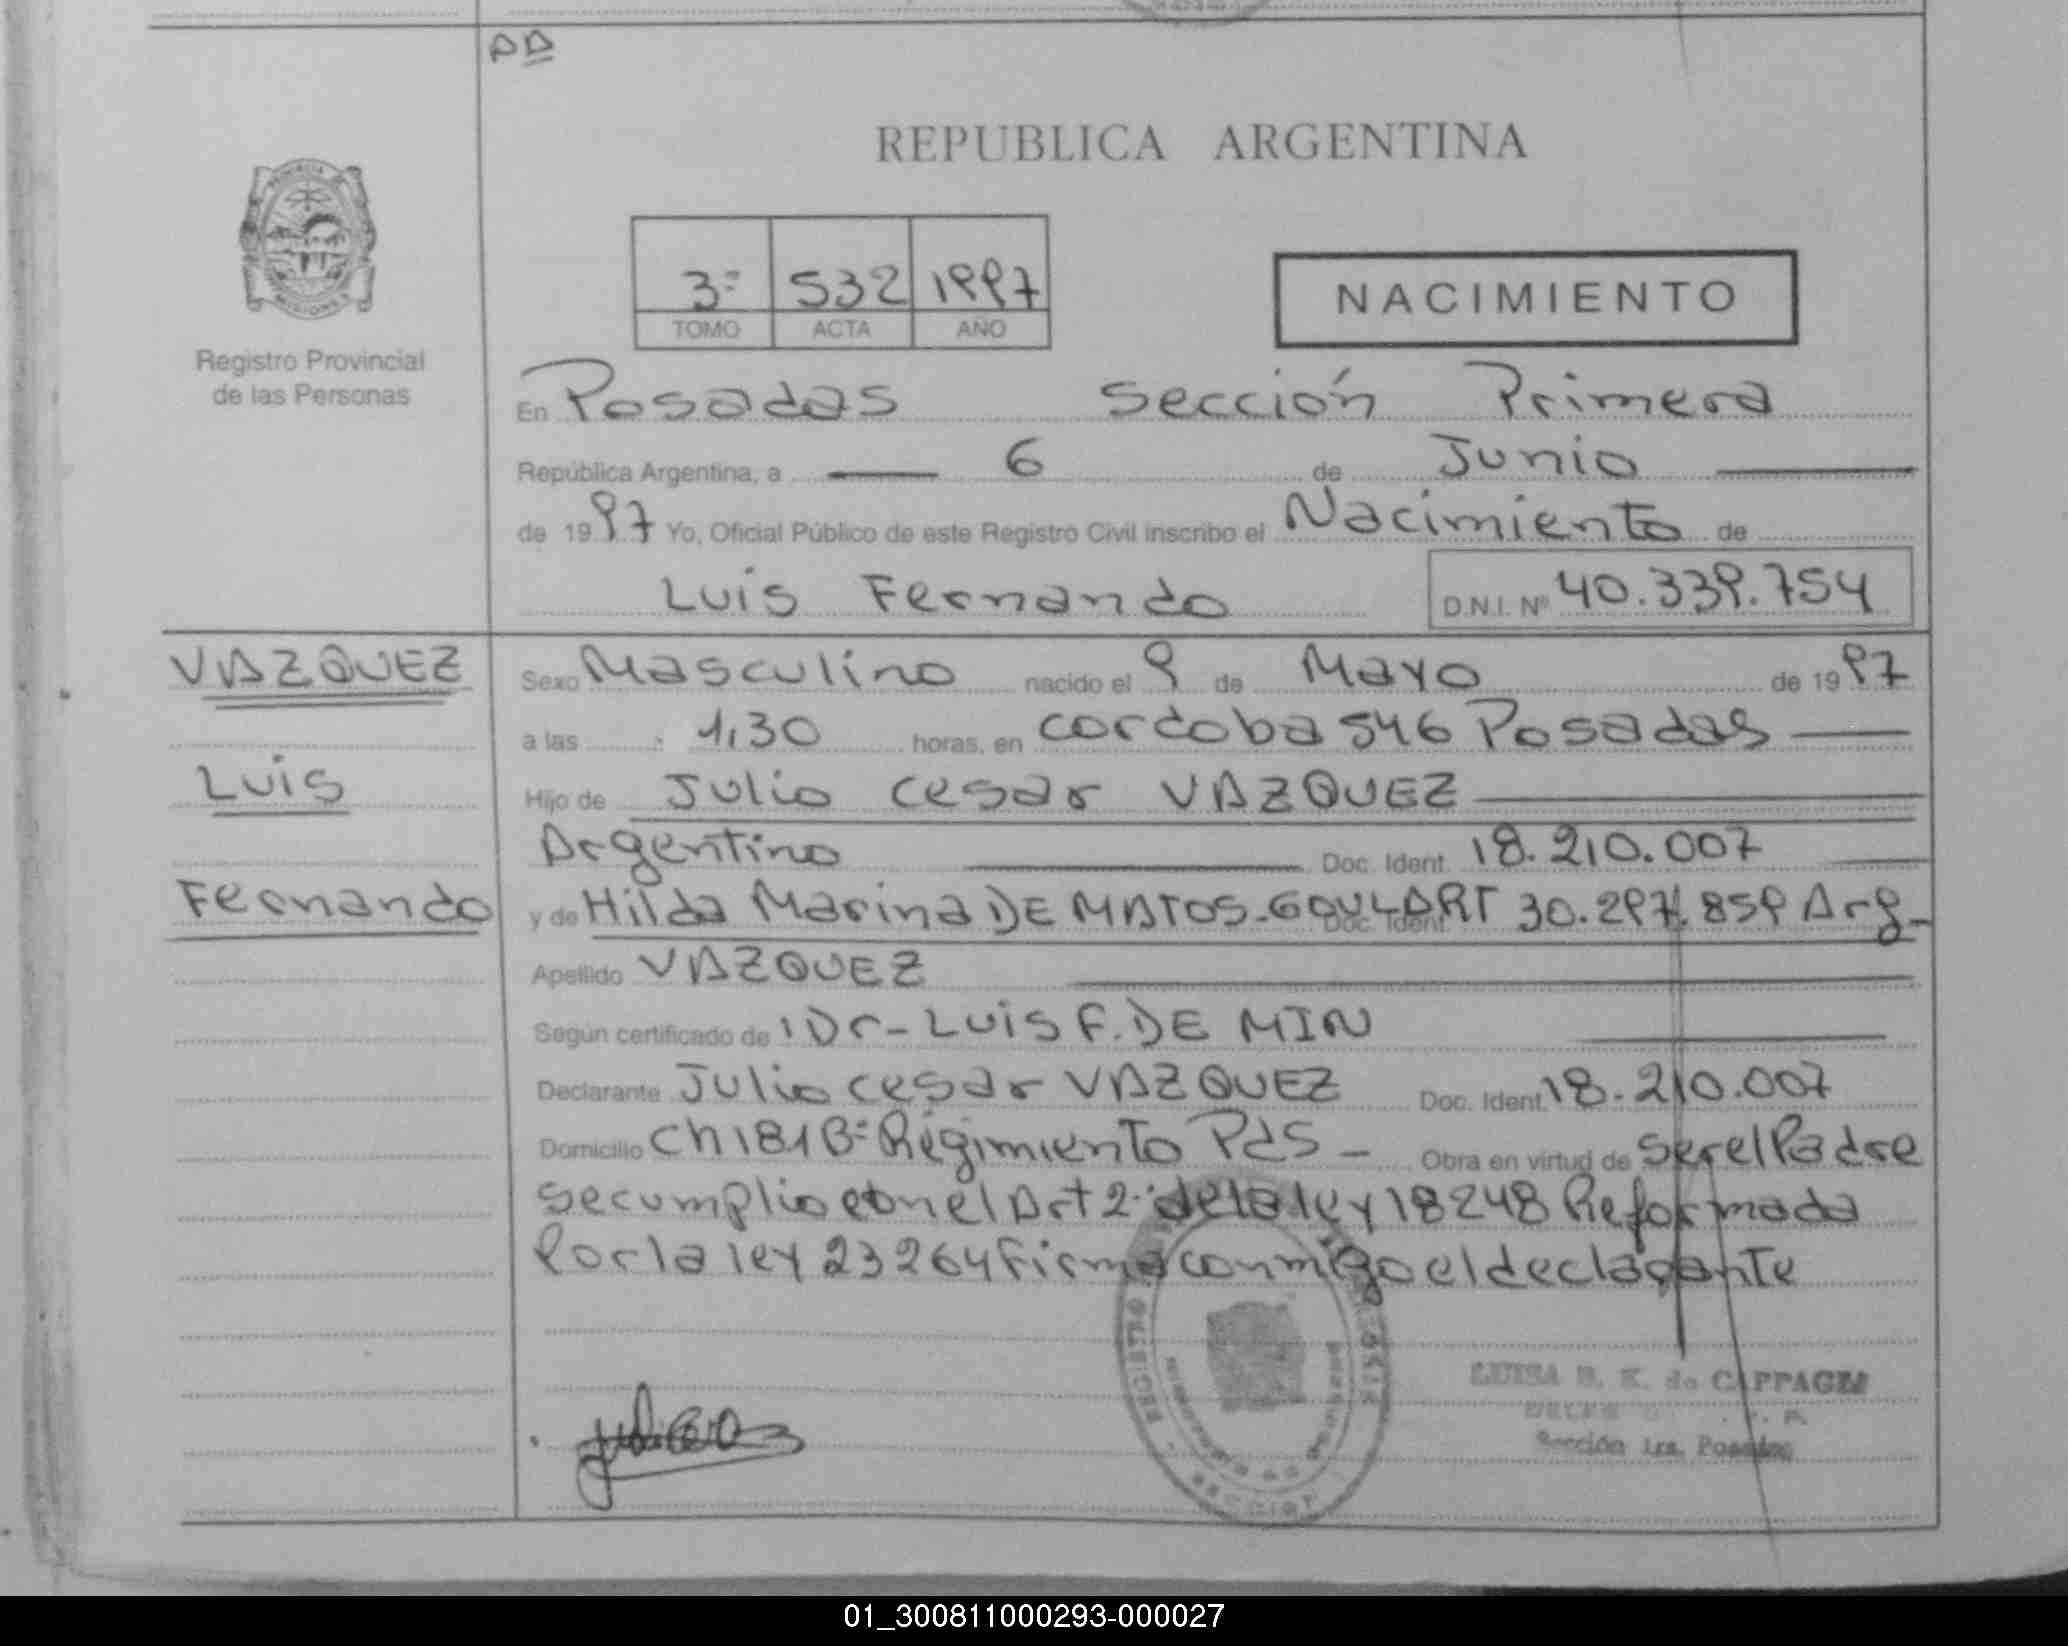 DD
REPUBLICA ARGENTINA
3º 532 1997
TOMO ACTA AÑO
NACIMIENTO
Registro Provincial
de las Personas
En Posadas Sección Primera
República Argentina, a 6 de Junio
de 1997 Yo, Oficial Público de este Registro Civil inscribo el Nacimiento de
Luis Fernando D.N.I. Nº 40.339.754
VAZQUEZ
Luis
Fernando
Sexo Masculino nacido el 9 de Mayo de 1997
a las 1,30 horas, en cordoba 546 Posadas
Hijo de Julio Cesar VAZQUEZ
Argentino Doc. Ident. 18.210.007
y de Hilda Marina DE MATOS-GOULART Doc. Ident. 30.297.859 Arg-
Apellido VAZQUEZ
Según certificado de Dr-Luis F. DE MIN
Declarante Julio Cesar VAZQUEZ Doc. Ident. 18.210.007
Domicilio Ch 181 Bº Regimiento Pds - Obra en virtud de ser el Padre
se cumplio con el Art 2º de la ley 18248 Reformada
Por la ley 23264 firma conmigo el declarante
LUISA B. K. de CAPPAGLI
Sección 1ra. Posadas
01_300811000293-000027